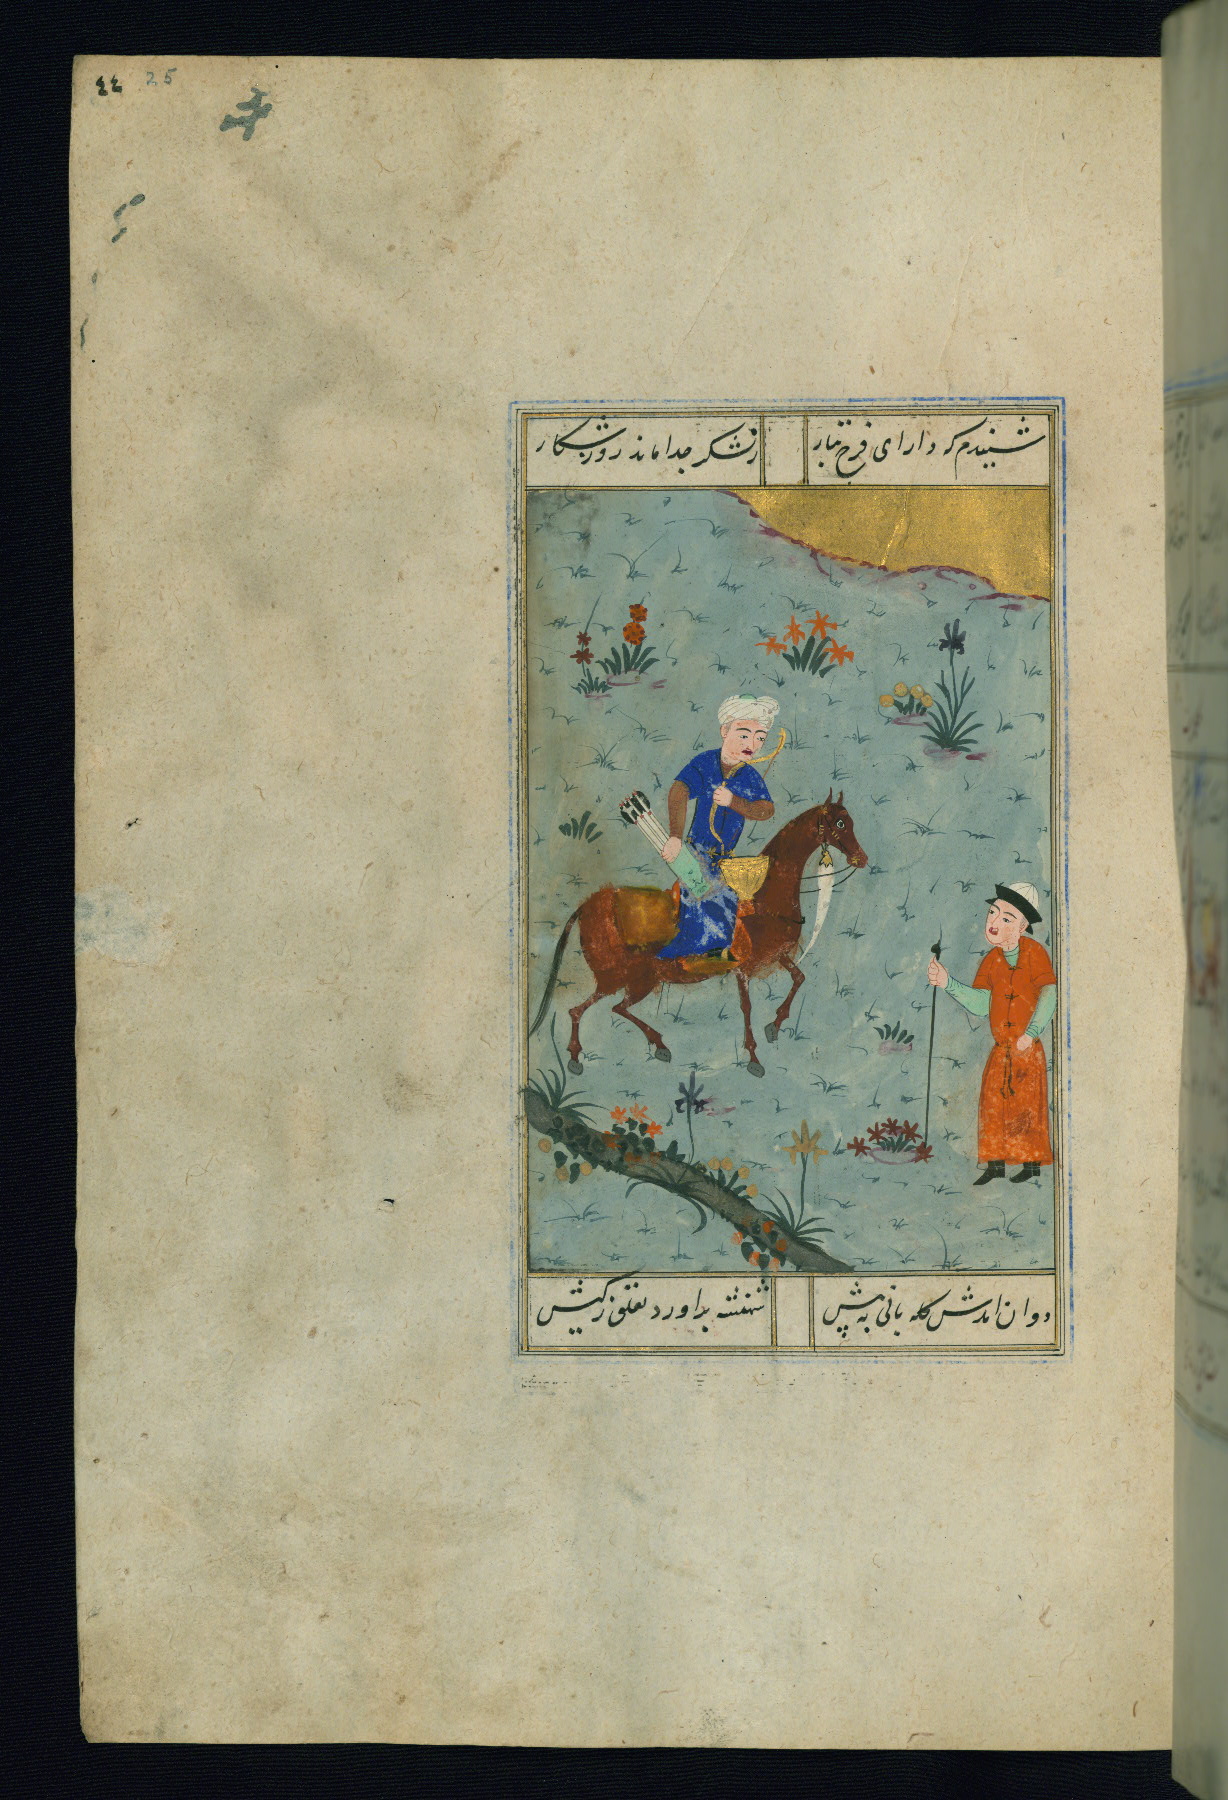 ٤٤ 25
شنیدم که دارای فرخ تبار ز لشکر جدا ماند روز شکار
دوان آمدش گله بانی به پیش شهنشه برآورد تغلق ز کیش